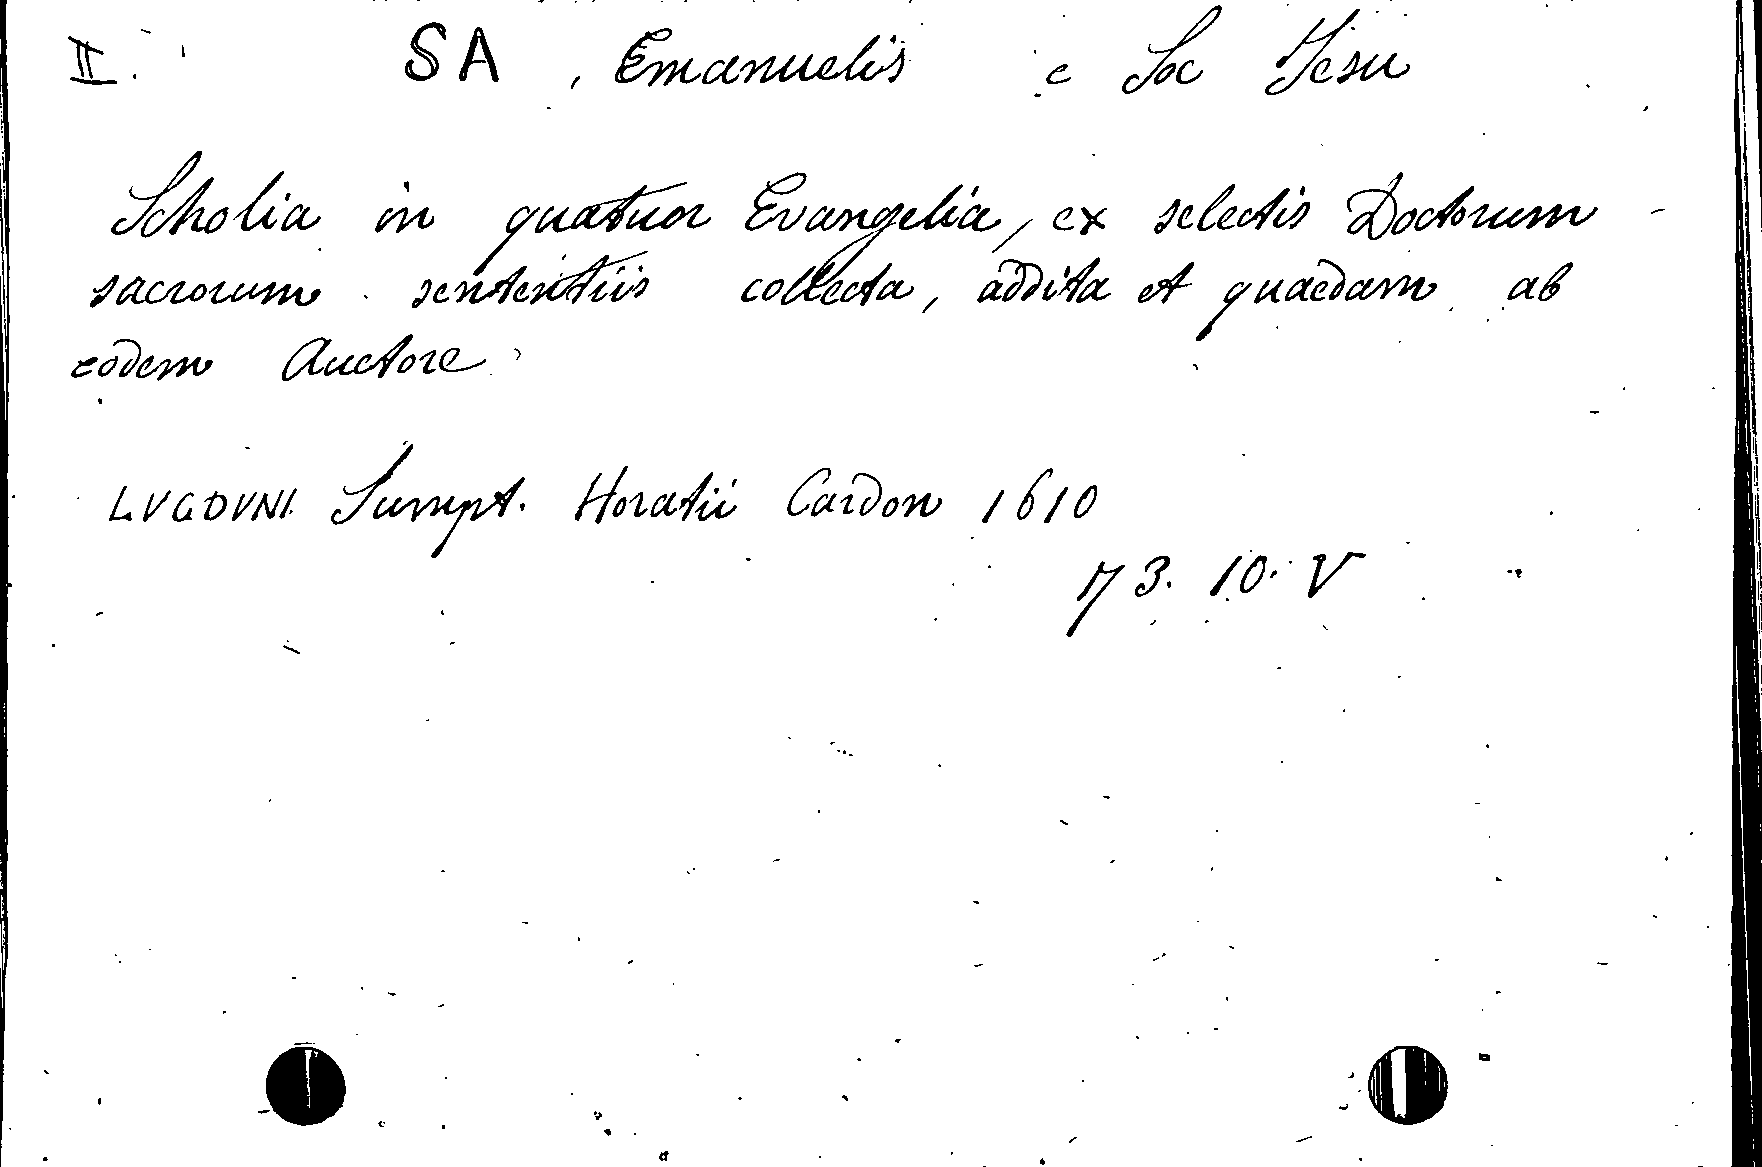 II. SA, Emanuelis e Soc Jesu
Scholia in quatuor Evangelia, ex selectis Doctorum
sacrorum sententiis collecta, addita et quaedam ab
eodem Auctore
LVGDVNI. Sumpt. Horatii Cardon 1610
73. 10. V